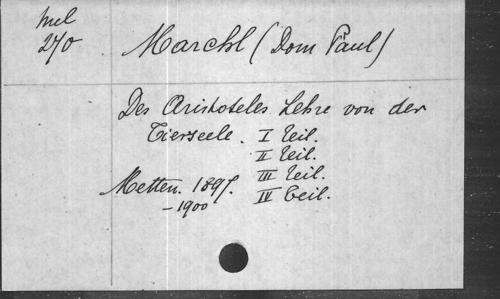 Mel
270
Marchl (Dom Paul)
Des Aristoteles Lehre von der
Tierseele. I Teil.
II Teil.
III Teil.
IV Teil.
Metten. 1897.
-1900